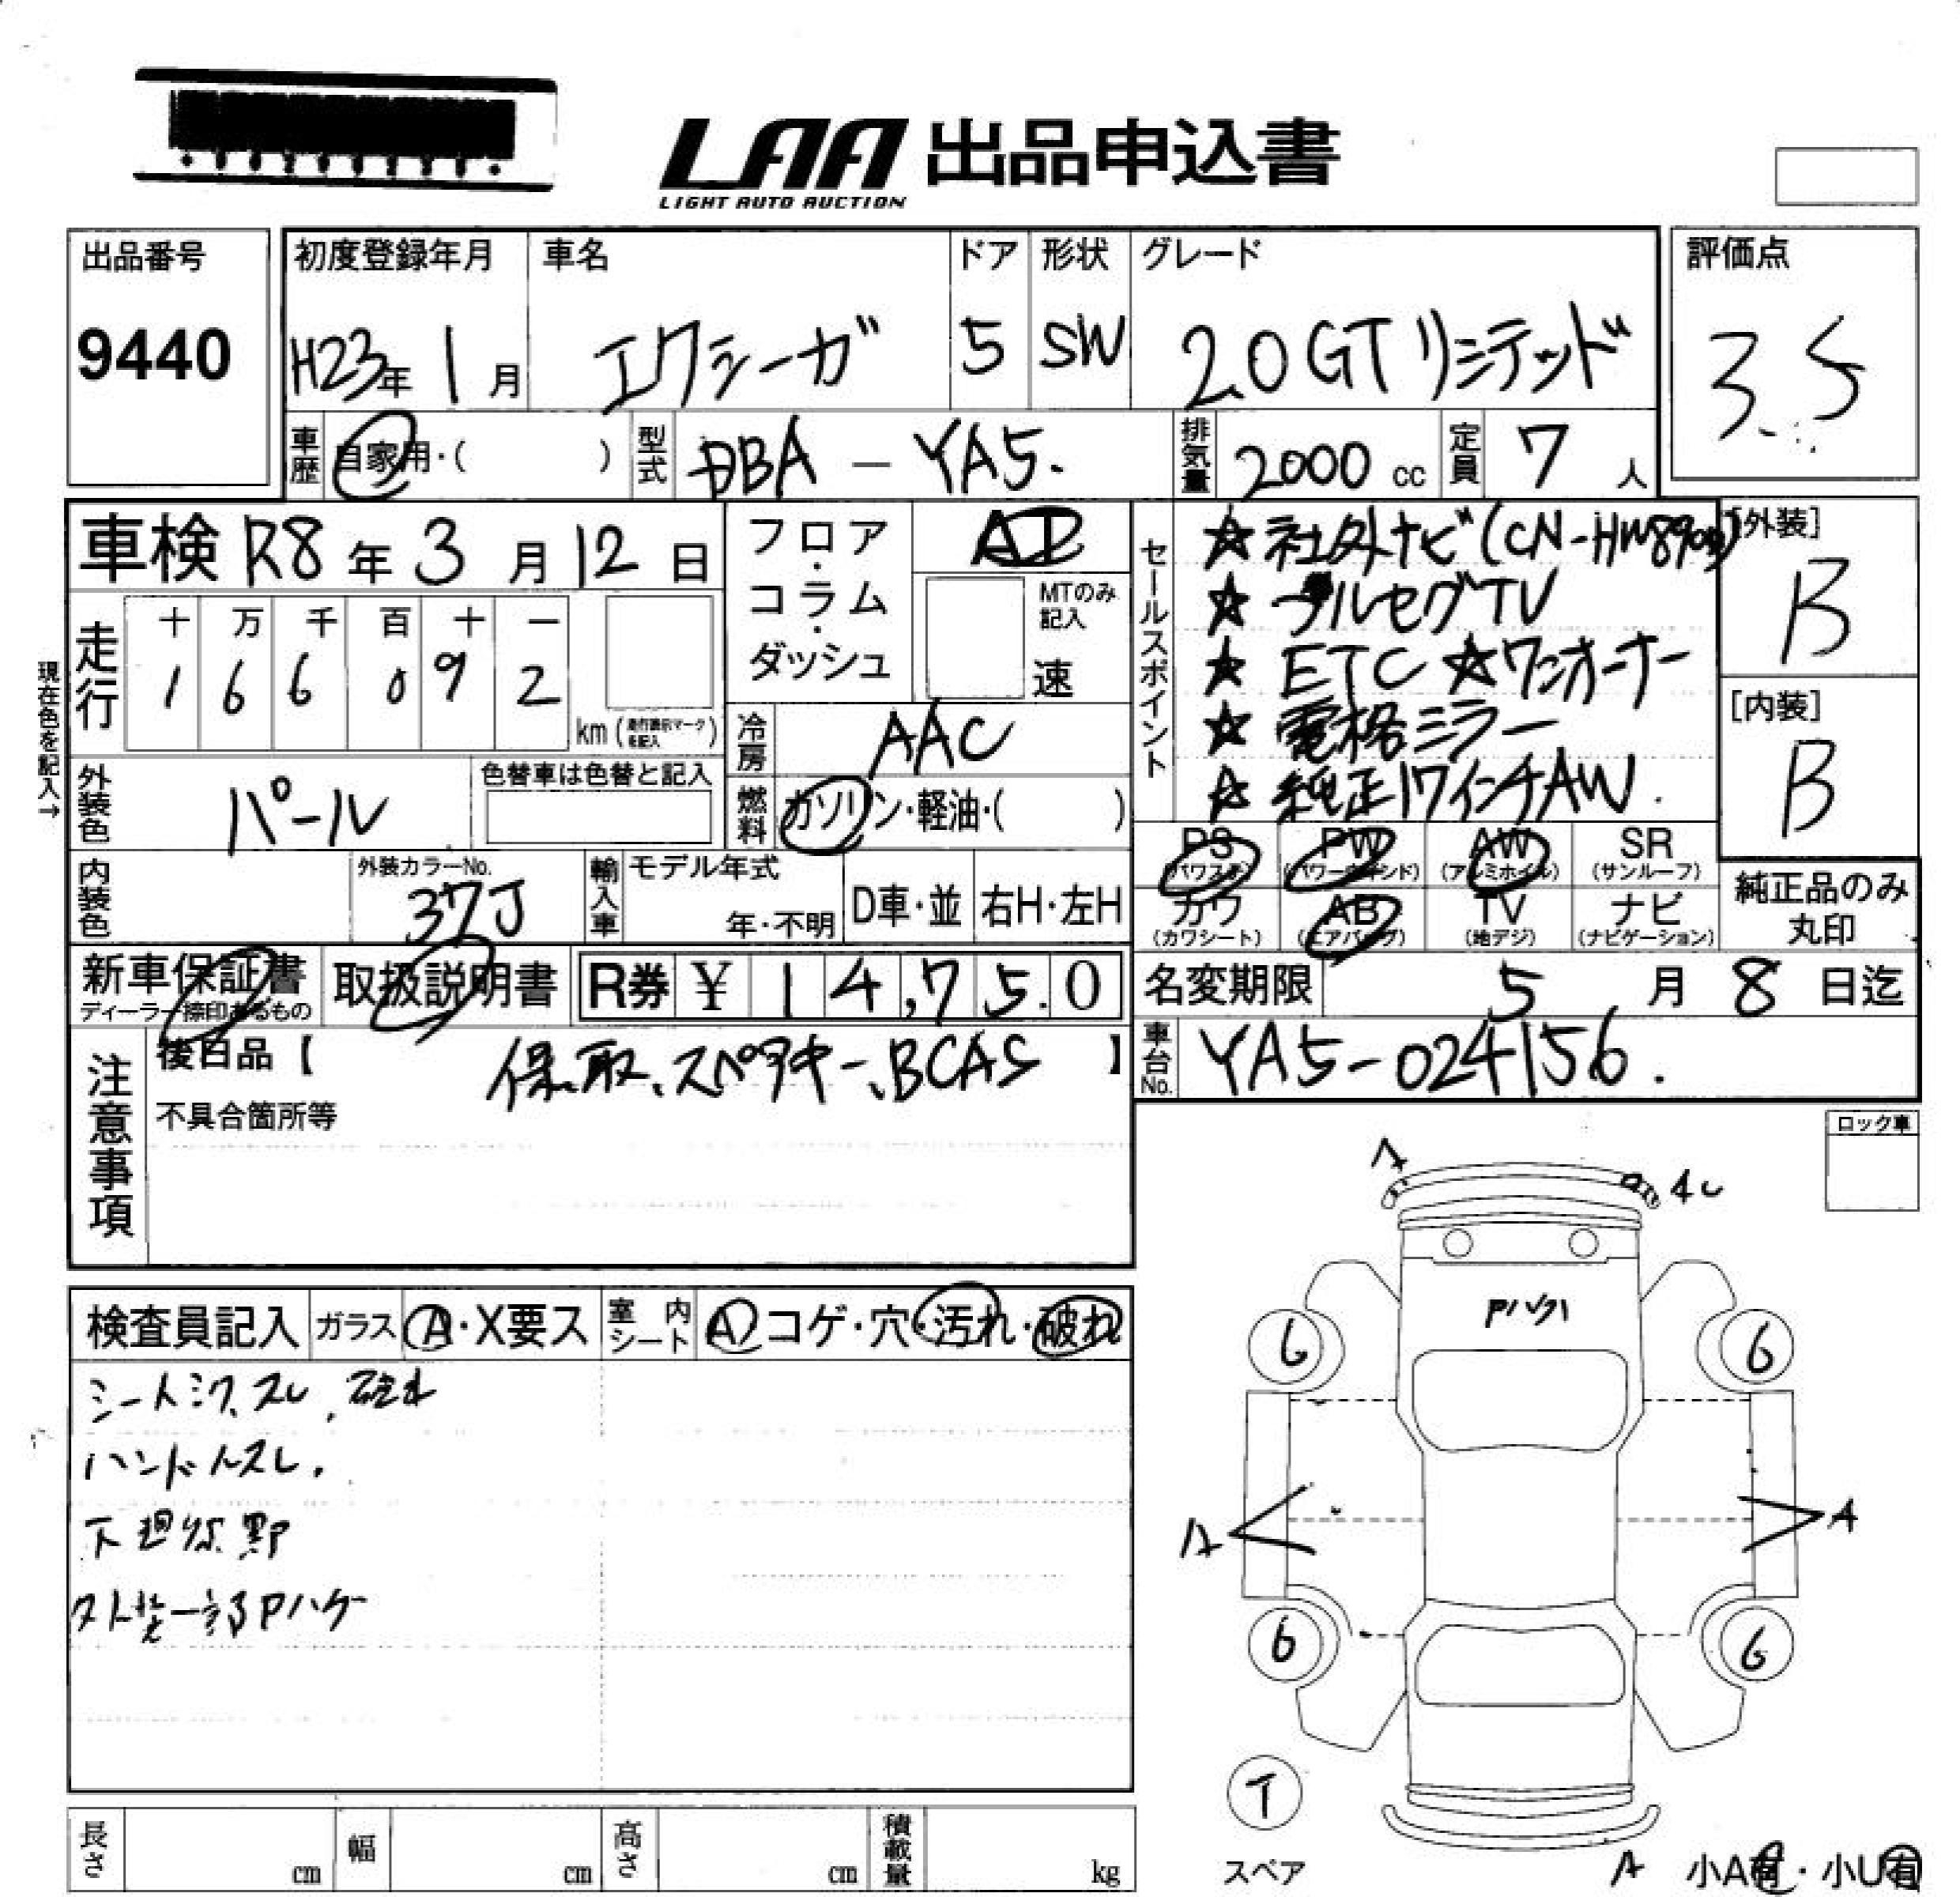 LAA 出品申込書
LIGHT AUTO AUCTION
出品番号
9440
初度登録年月
H23年 1月
車名
エクシーガ
ドア
5
形状
SW
グレード
2.0GTリミテッド
評価点
3.5
車歴
自家用・( )
型式
DBA - YA5.
排気量
2000 cc
定員
7 人
車検 R8年 3月 12日
フロア・コラム・ダッシュ
MTのみ記入
速
セールスポイント
☆社外ナビ(CN-HW890D)
☆フルセグTV
☆ETC ☆ワンオーナー
☆電格ミラー
☆純正17インチAW.
[外装]
B
[内装]
B
現在色を記入→
走行
十 万 千 百 十 一
1 6 6 0 9 2
km
冷房
AAC
外装色
パール
色替車は色替と記入
燃料
ガソリン・軽油・( )
PS PW AW SR
(パワステ) (パワーウインド) (アルミホイル) (サンルーフ)
内装色
外装カラーNo.
37J
輸入車
モデル年式
年・不明
D車・並
右H・左H
カワ AB TV ナビ
(カワシート) (エアバッグ) (地デジ) (ナビゲーション)
純正品のみ
丸印
新車保証書
ディーラー捺印あるもの
取扱説明書
R券 ¥ 14,75.0
名変期限 5月 8日迄
注意事項
後日品【 保、取、スペアキー、BCAS 】
車台No.
YA5-024156.
不具合箇所等
ロック車
A
4U
検査員記入
ガラス
A・X要ス
室内シート
A コゲ・穴・汚れ・破れ
シートシワ、スレ、破れ
ハンドルスレ.
Pハゲ
6
6
A
A
6
6
T
スペア
A
小A有・小U有
長さ
cm
幅
cm
高さ
cm
積載量
kg